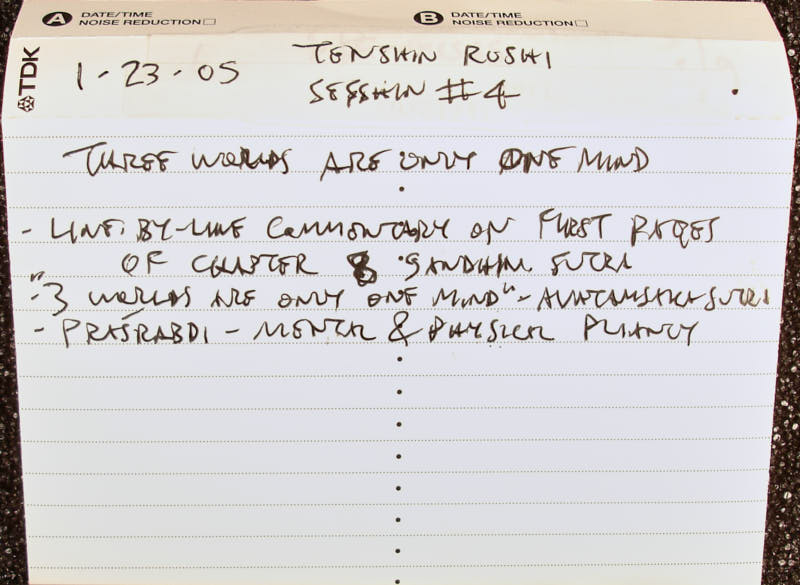 A DATE/TIME
NOISE REDUCTION
B DATE/TIME
NOISE REDUCTION
TDK
1-23-05
TENSHIN ROSHI
SESSHIN #4
THREE WORLDS ARE ONLY ONE MIND
- LINE-BY-LINE COMMENTARY ON FIRST PAGES
OF CHAPTER 8 SANDHIN. SUTRA
"3 WORLDS ARE ONLY ONE MIND" - AVATAMSAKA SUTRA
- PRAŚRABDI - MENTAL & PHYSICAL PLIANCY